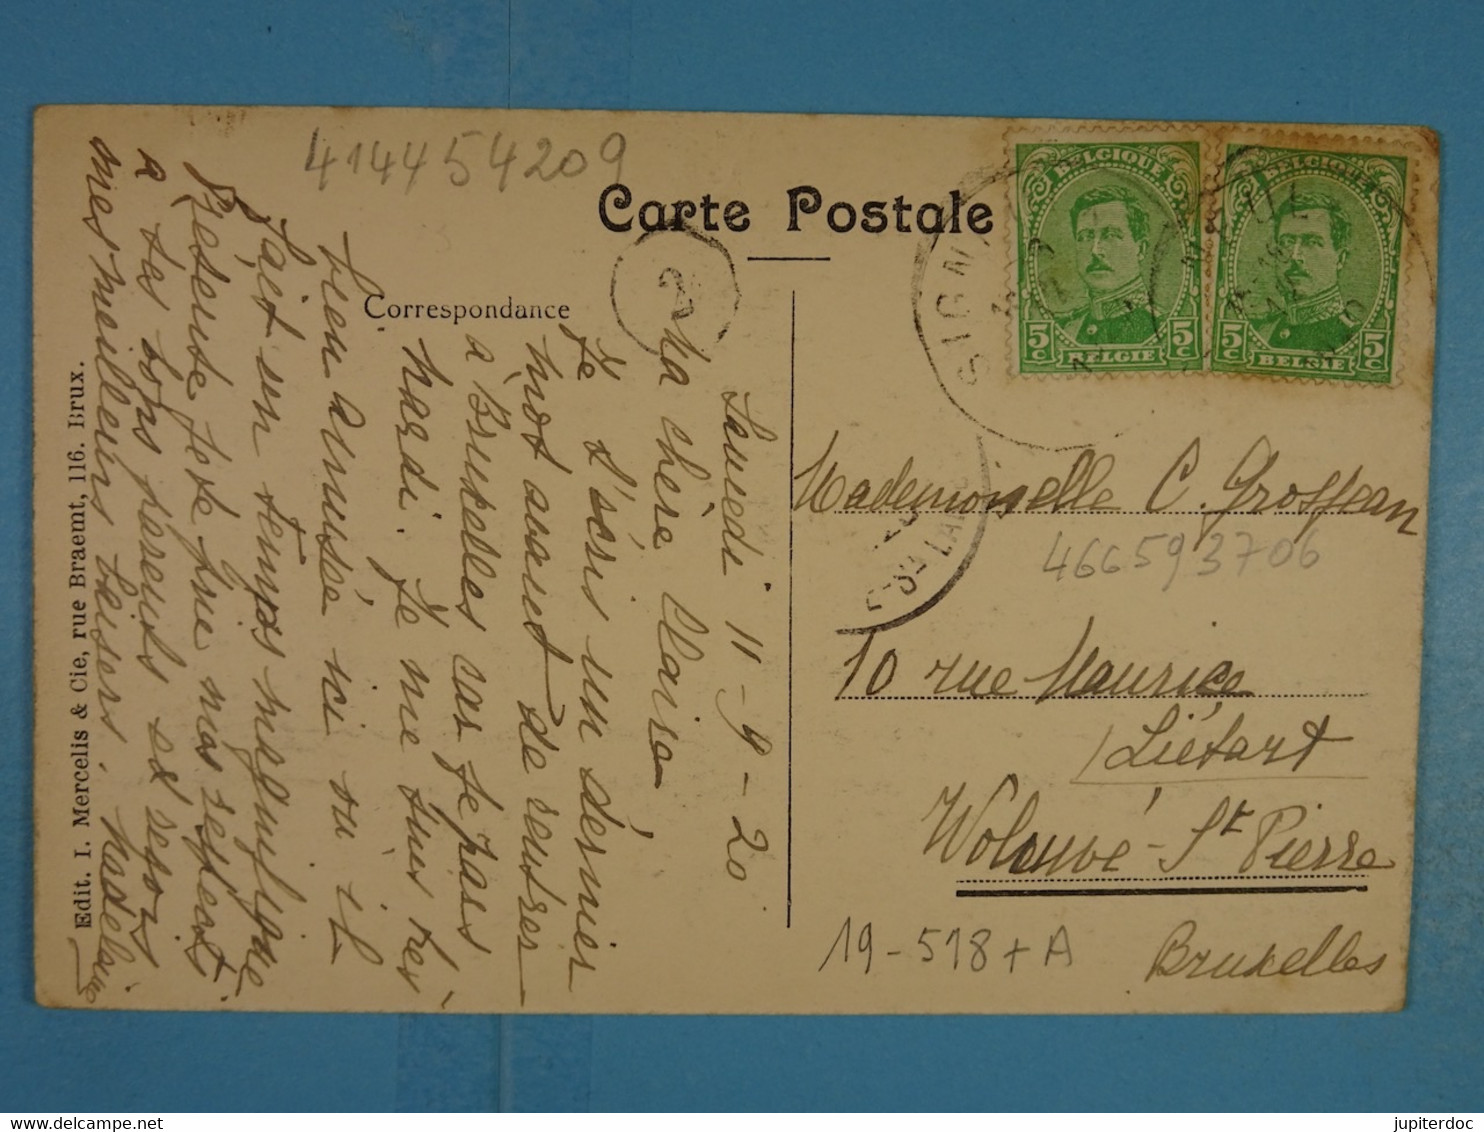 4144454209
Carte Postale
Correspondance
2
Samedi 11-9-20
Ma chère Claire
Je t'écris un dernier
mot avant de rentrer
à Bruxelles car je pars
mardi. Je me suis très
bien amusée ici où il
fait un temps magnifique
Présente je te prie mes respects
à tes bons parents et reçois
mes meilleurs baisers. Madeleine
Edit. I. Mercelis & Cie, rue Braemt, 116. Brux.
BELGIQUE
5c 5c
BELGIE
BELGIQUE
5c 5c
BELGIE
SIGN
Mademoiselle C. Grosjean
466593706
10 rue Maurice
Liétart
Woluwé-St Pierre
Bruxelles
19-518+A
jupiterdoc